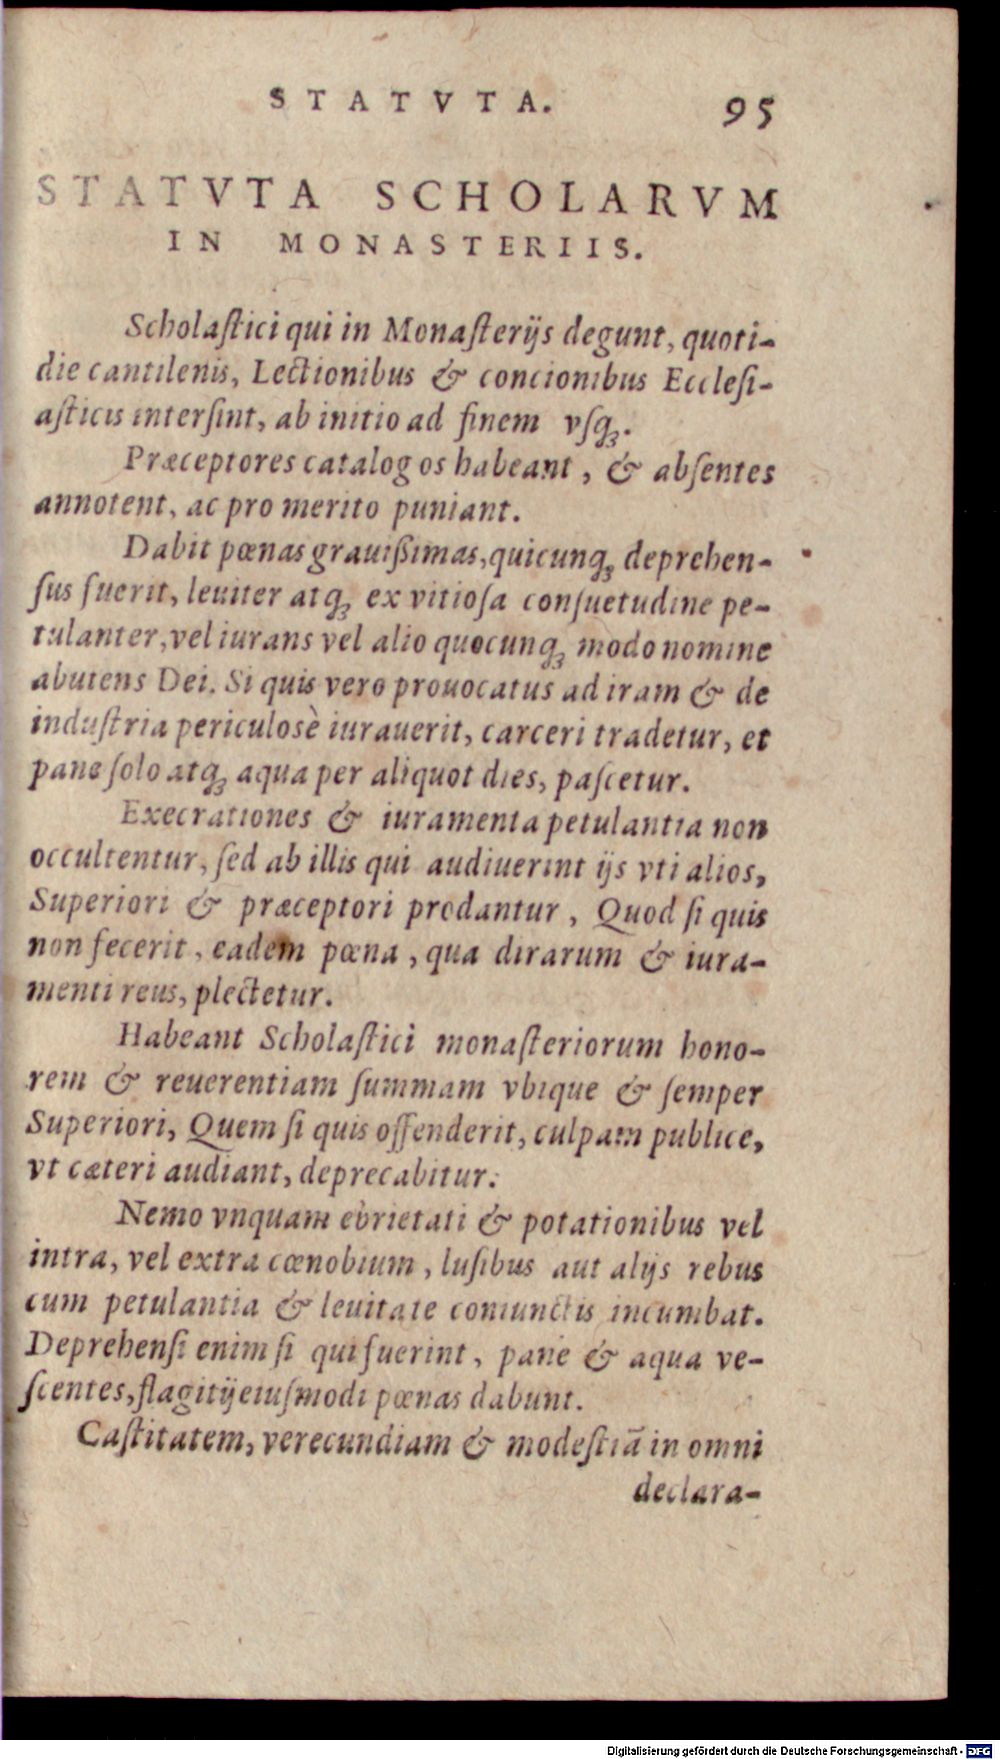 STATVTA. 95
STATVTA SCHOLARVM
IN MONASTERIIS.
Scholaſtici qui in Monaſterijs degunt, quoti-
die cantilenis, Lectionibus & concionibus Eccleſi-
aſticis interſint, ab initio ad finem vſq́ꝫ.
Præceptores catalogos habeant, & abſentes
annotent, ac pro merito puniant.
Dabit pœnas grauißimas, quicunqꝫ deprehen-
ſus fuerit, leuiter atqꝫ ex vitioſa conſuetudine pe-
tulanter, vel iurans vel alio quocunqꝫ modo nomine
abutens Dei. Si quis vero prouocatus ad iram & de
induſtria periculosè iurauerit, carceri tradetur, et
pane ſolo atqꝫ aqua per aliquot dies, paſcetur.
Execrationes & iuramenta petulantia non
occultentur, ſed ab illis qui audiuerint ijs vti alios,
Superiori & præceptori prodantur, Quod ſi quis
non fecerit, eadem pœna, qua dirarum & iura-
menti reus, plectetur.
Habeant Scholaſtici monaſteriorum hono-
rem & reuerentiam ſummam vbique & ſemper
Superiori, Quem ſi quis offenderit, culpam publice,
vt cæteri audiant, deprecabitur.
Nemo vnquam ebrietati & potationibus vel
intra, vel extra cœnobium, luſibus aut alijs rebus
cum petulantia & leuitate coniunctis incumbat.
Deprehenſi enim ſi qui fuerint, pane & aqua ve-
ſcentes, flagitij eiuſmodi pœnas dabunt.
Caſtitatem, verecundiam & modeſtiā in omni
declara-
Digitalisierung gefördert durch die Deutsche Forschungsgemeinschaft - DFG